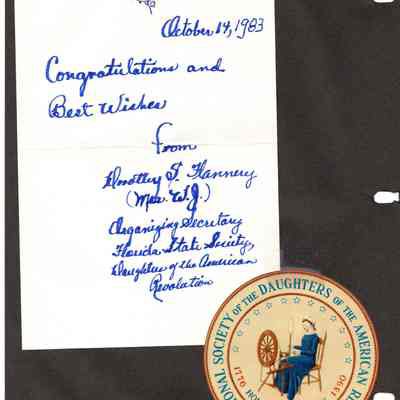 October 14, 1983
Congratulations and
Best Wishes
From
Dorothy S. Flannery
(Mrs. W.J.)
Organizing Secretary
Florida State Society,
Daughters of the American
Revolution
NATIONAL SOCIETY OF THE DAUGHTERS OF THE AMERICAN R
1776
HO
1890